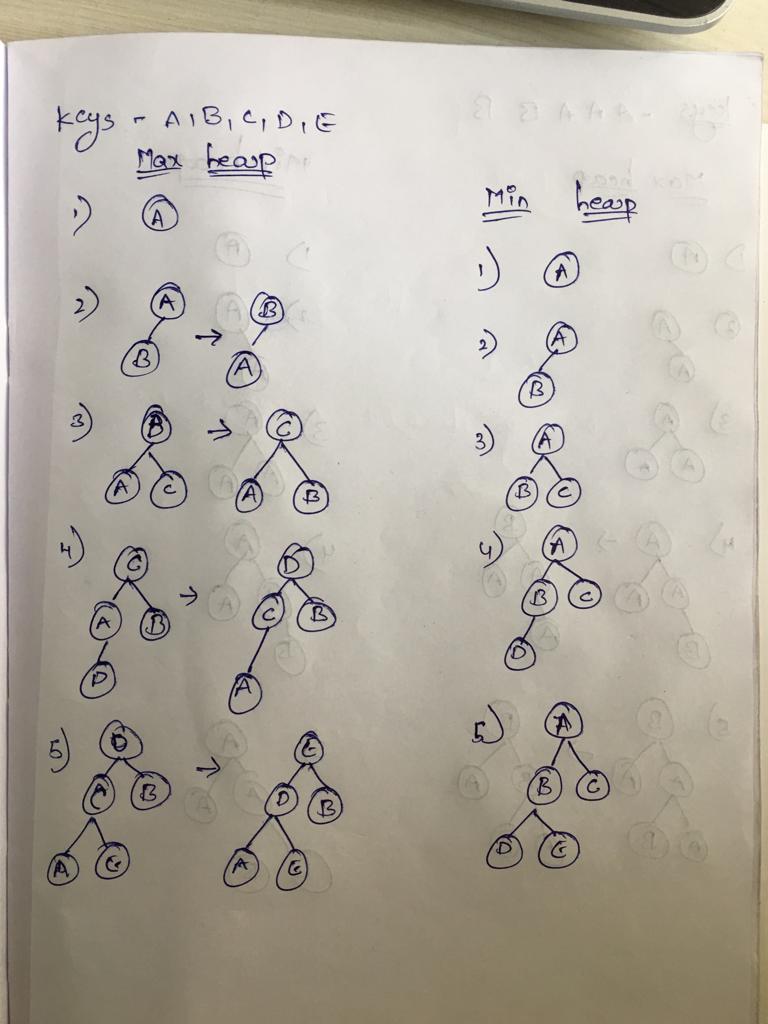 Keys - A, B, C, D, E
Max heap
1) A
2) A
B
→
B
A
3) B
A C
→
C
A B
4) C
A B
D
→
D
C B
A
5) D
C B
A E
→
E
D B
A E
Min heap
1) A
2) A
B
3) A
B C
4) A
B C
D
5) A
B C
D E